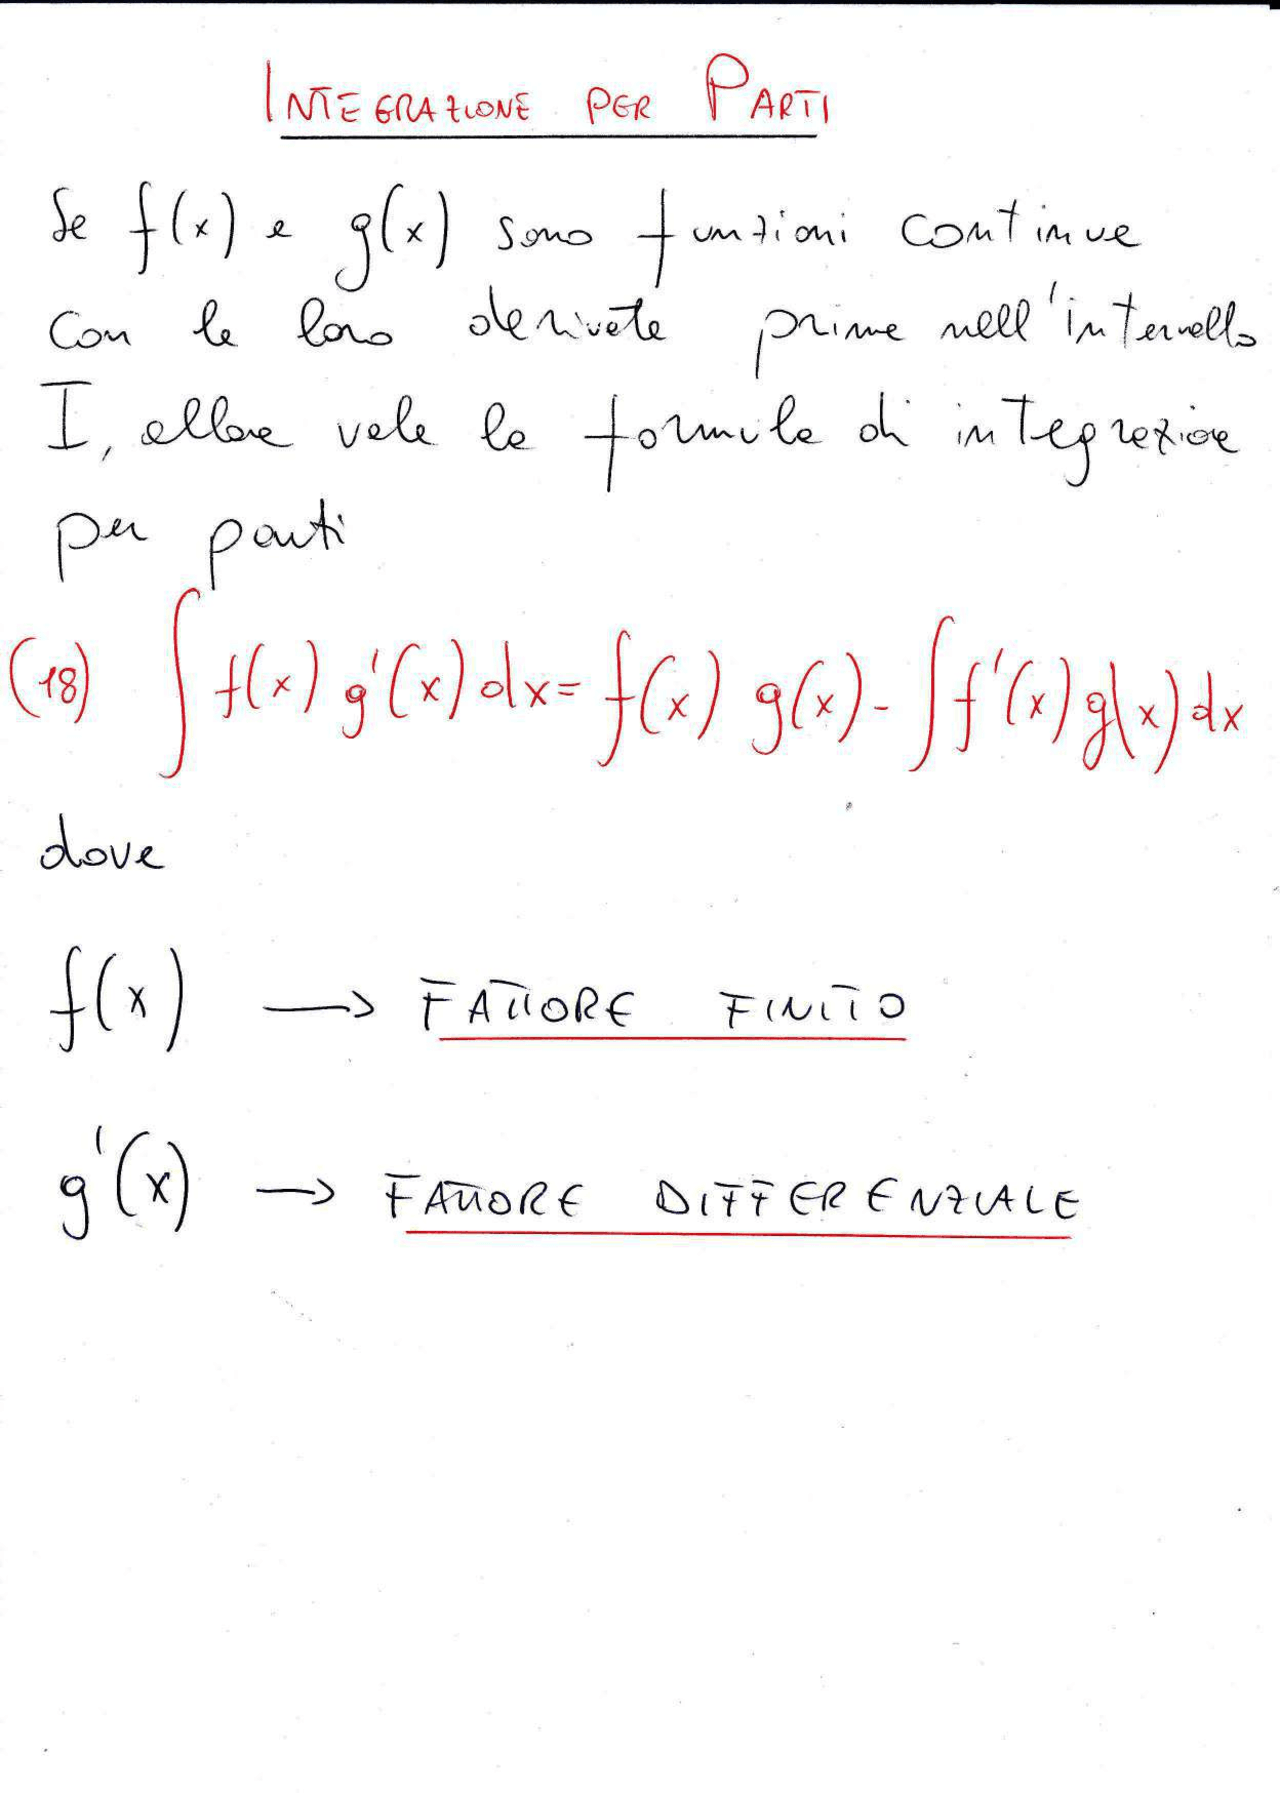 INTEGRAZIONE PER PARTI
Se f(x) e g(x) sono funzioni continue
con le loro derivate prime nell'intervallo
I, allora vale la formula di integrazione
per parti
(18) ∫ f(x) g'(x) dx = f(x) g(x) - ∫ f'(x) g(x) dx
dove
f(x) → FATTORE FINITO
g'(x) → FATTORE DIFFERENZIALE